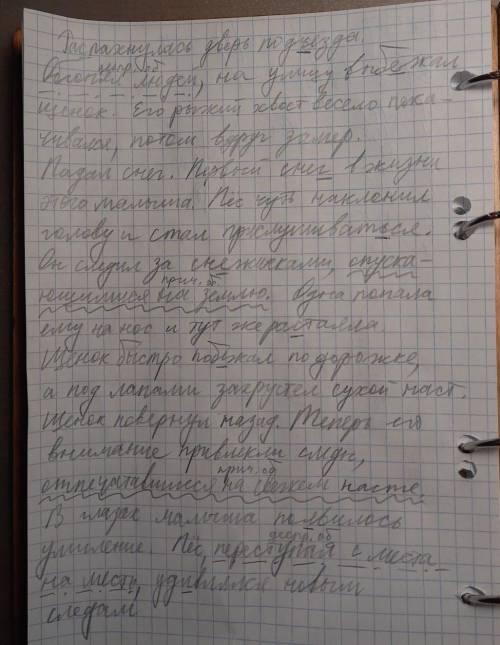 Распахнулась дверь подъезда.
деепр.об
Обогнав людей, на улицу выбежал
щенок. Его рыжий хвост весело пока-
чивался, потом вдруг замер.
Падал снег. Первый снег в жизни
этого малыша. Пёс чуть наклонил
голову и стал прислушиваться.
Он следил за снежинками, опуска-
прич.об
ющимися на землю. Одна попала
ему на нос и тут же растаяла.
Щенок быстро побежал по дорожке,
а под лапами захрустел сухой наст.
Щенок повернул назад. Теперь его
внимание привлекли следы,
прич.об
отпечатавшиеся на свежем насте.
В глазах малыша появилось
деепр.об
умиление. Пёс, переступая с места
на место, удивлялся новым
следам